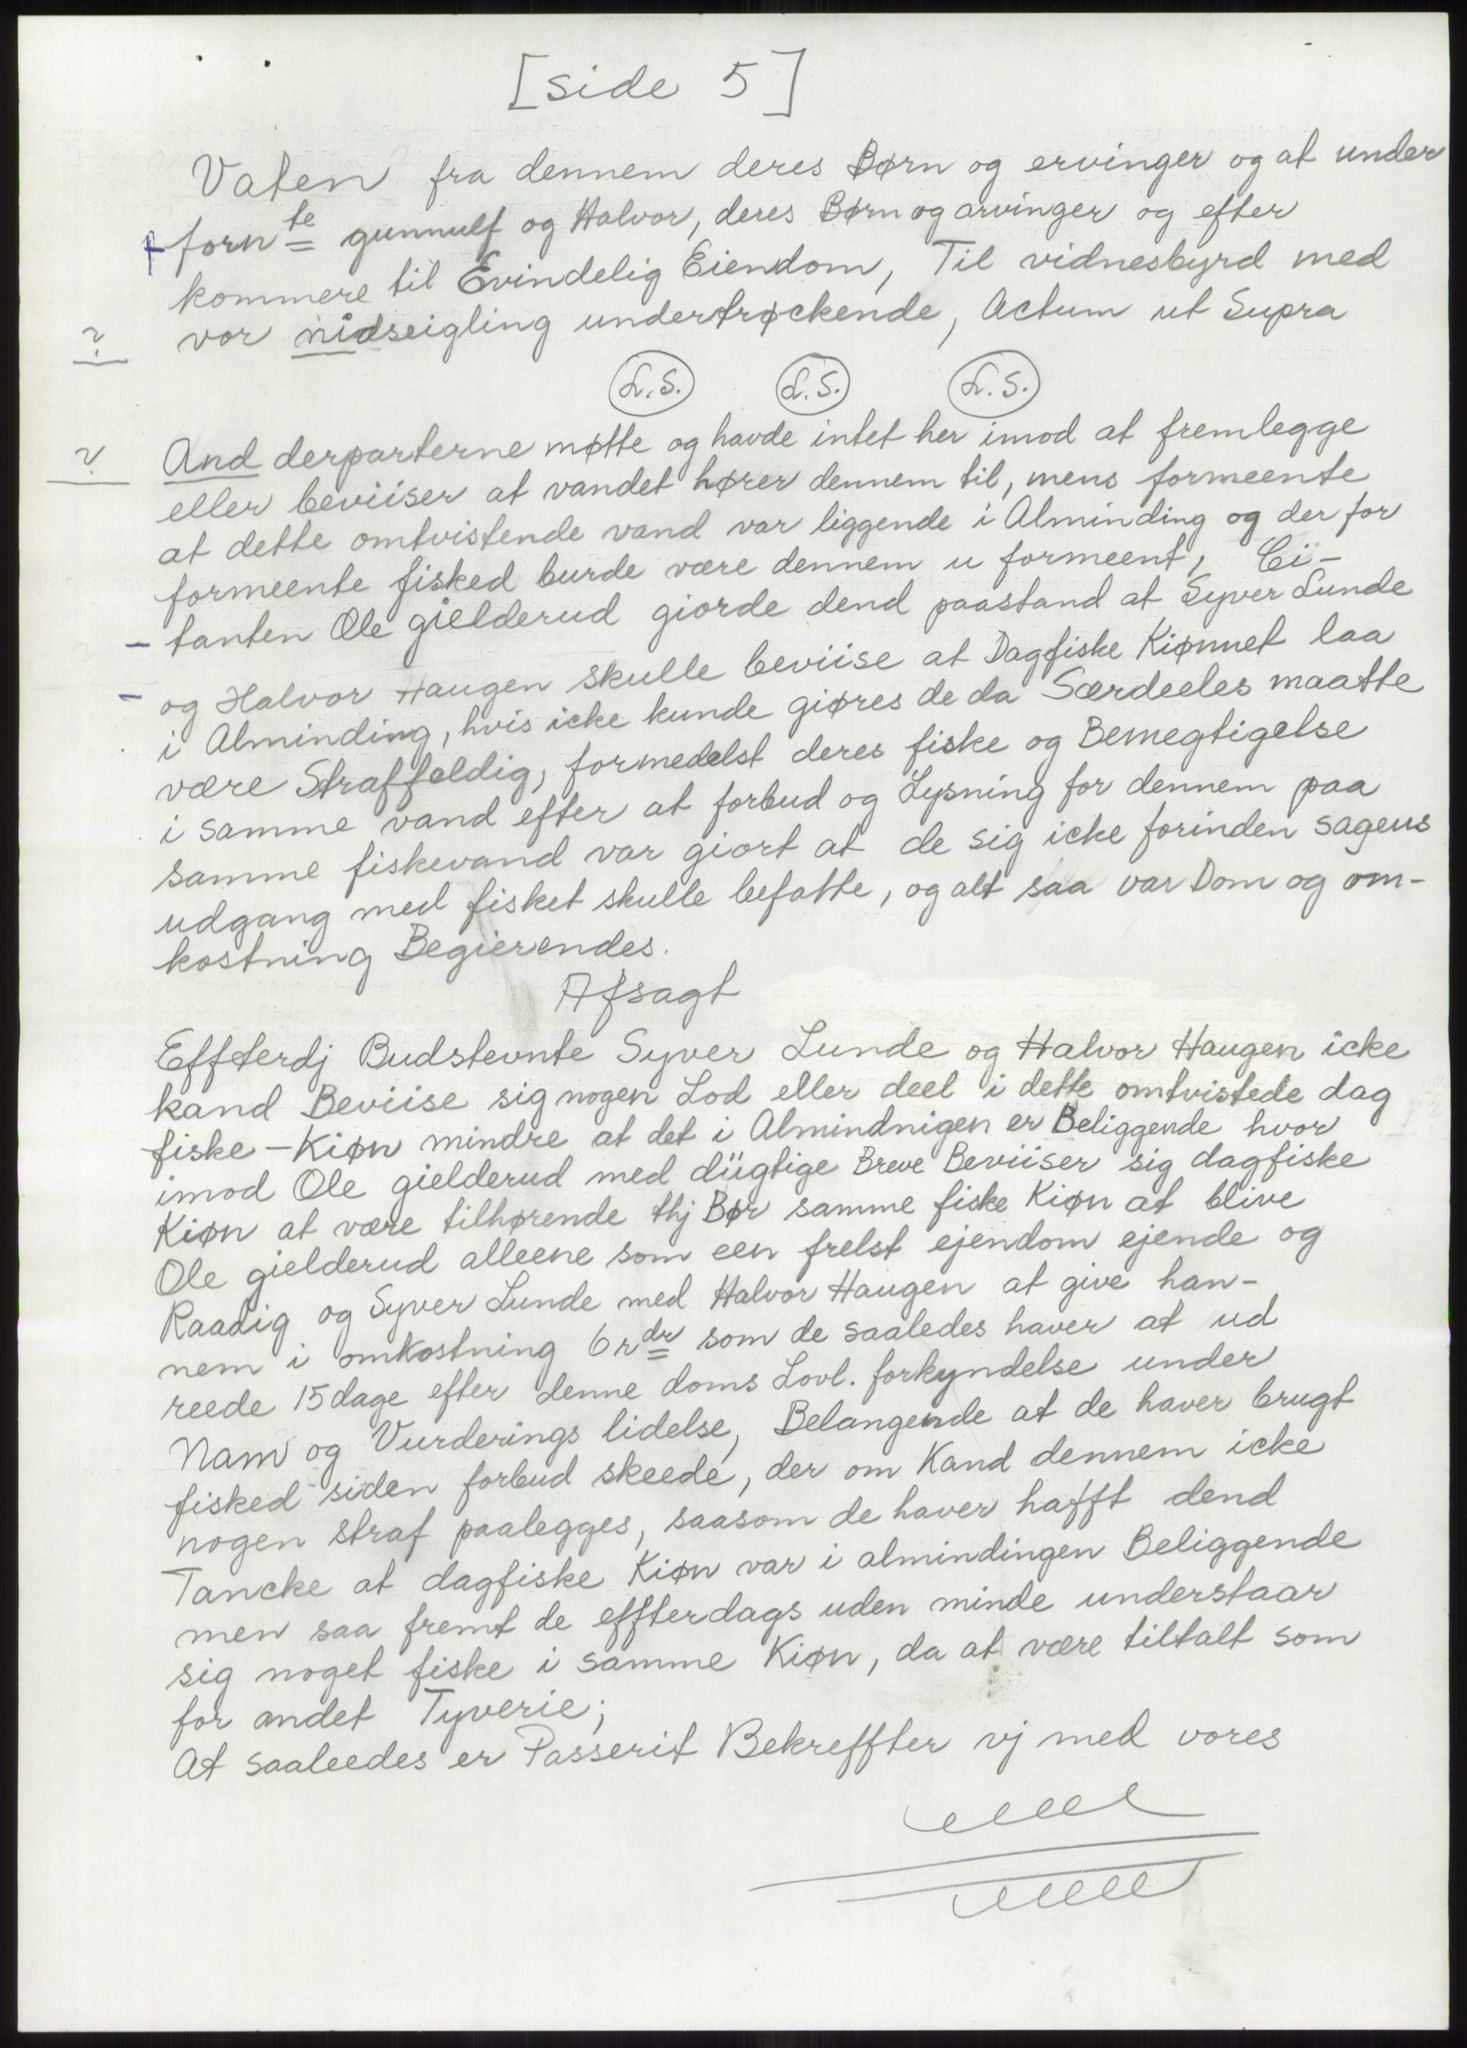 [side 5]
Vaten fra dennem deres Børn og ervinger og at under
forn te gunnulf og Halvor, deres Børn og arvinger og efter
kommere til Evindelig Eiendom, Til vidnesbyrd med
? vor nidseigling undertrøckende, Actum ut Supra
L.S. L.S. L.S.
? And derparterne møtte og havde intet her imod at fremlegge
eller beviiser at vandet hører dennem til, mens formeente
at dette omtvistende vand var liggende i Alminding og der for
formeente fisked burde være dennem u formeent, Ci-
- tanten Ole gielderud giorde dend paastand at Syver Lunde
- og Halvor Haugen skulle beviise at Dagfiske Kiønnet laa
i Alminding, hvis icke kunde giøres de da Særdeeles maatte
være Straffeldig, formedelst deres fiske og Bemegtigelse
i samme vand efter at forbud og Lysning for dennem paa
samme fiskevand var giort at de sig icke forinden sagens
udgang med fisket skulle befatte, og alt saa var Dom og om-
kostning Begierendes.
Afsagt
Effterdj Budstevnte Syver Lunde og Halvor Haugen icke
kand Beviise sig nogen Lod eller deel i dette omtvistede dag
fiske - Kiøn mindre at det i Almindnigen er Beliggende hvor
imod Ole gielderud med dügtige Breve Beviiser sig dagfiske
Kiøn at være tilhørende thj Bør samme fiske Kiøn at blive
Ole gielderud alleene som een frelst ejendom ejende og
Raadig og Syver Lunde med Halvor Haugen at give han-
nem i omkostning 6 rdr som de saaledes haver at ud
reede 15 dage efter denne doms Lovl. forkyndelse under
Nam og Vurderings lidelse, Belangende at de haver brugt
fisked siden forbud skeede, der om Kand dennem icke
nogen straf paalegges, saasom de haver hafft dend
Tancke at dagfiske Kiøn var i almindingen Beliggende
men saa fremt de effterdags uden minde understaar
sig noget fiske i samme Kiøn, da at være tiltalt som
for andet Tyverie;
At saaleedes er Passerit Bekreffter vj med vores